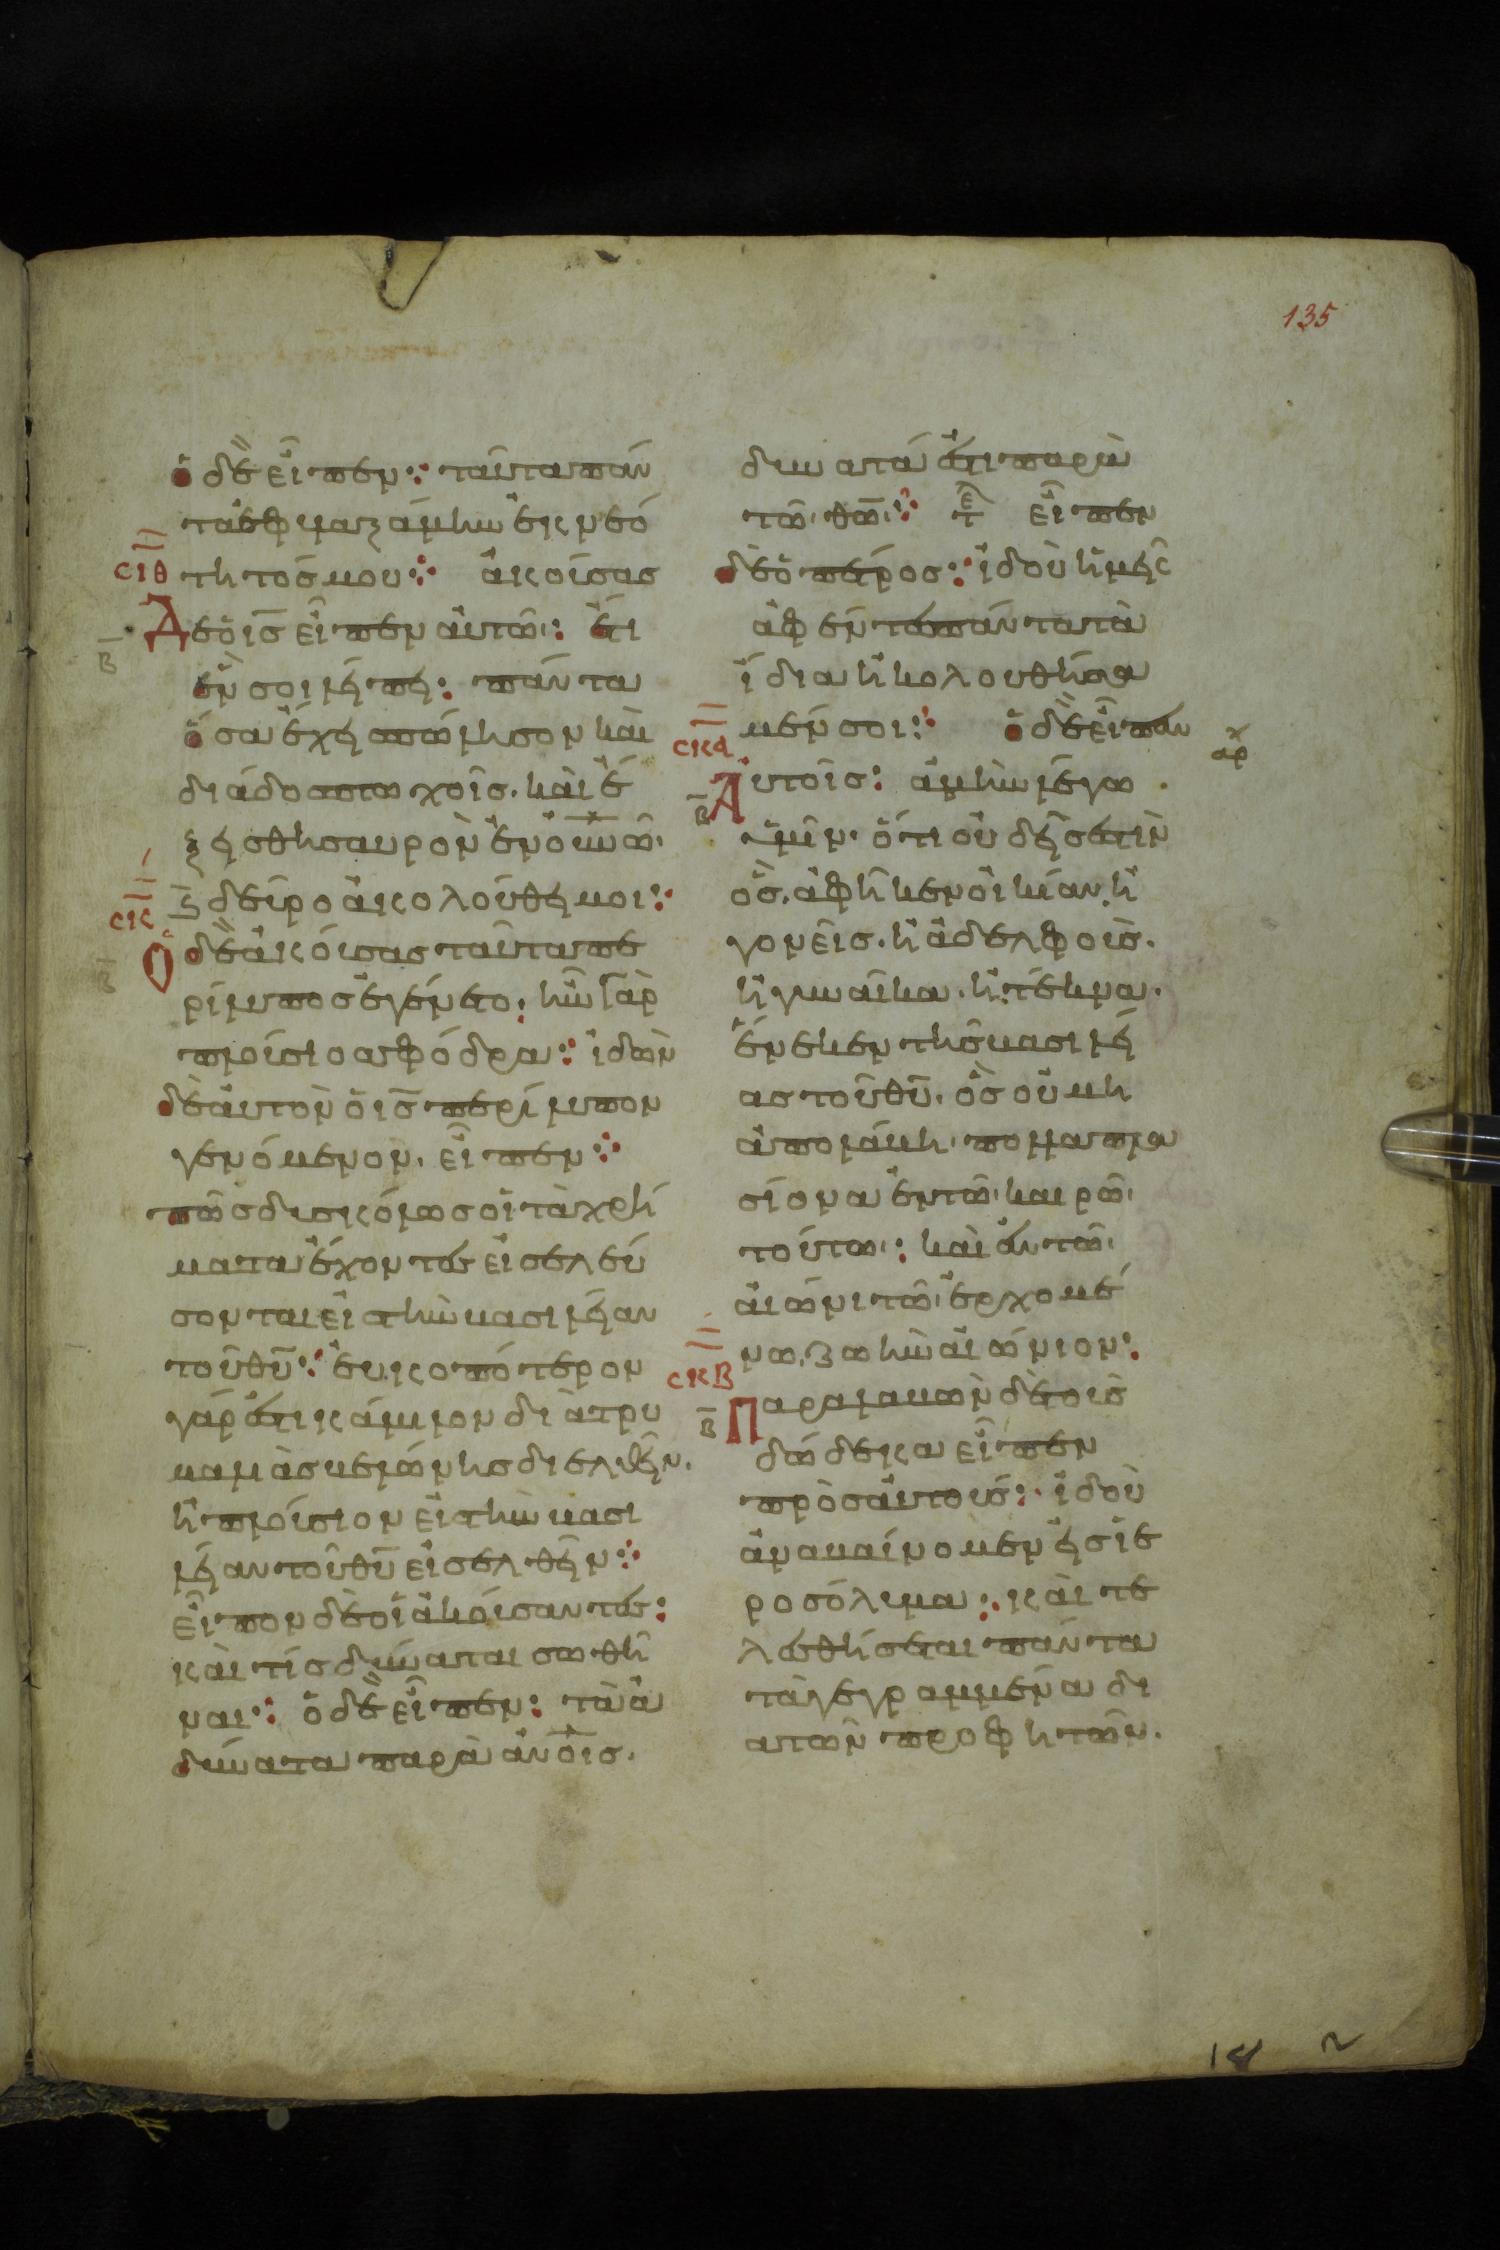 135
ὁ δὲ εἶπεν: ταῦτα πάν
τα ἐφυλαξάμην ἐκ νεό
σιθ τητός μου: ἀκούσας
Δὲ ὁ ις̅ εἶπεν αὐτῶ: ἔτι
β̅
ἕν σοι λείπει: πάντα
ὅσα ἔχει πώλησον καὶ
διάδος πτωχοῖς. καὶ ἕ
ξεις θησαυρὸν ἐν ου̅νω̅.
δεῦρο ἀκολούθει μοι:
σκ
Ὁ δὲ ἀκούσας ταῦτα πε
β̅
ρίλυπος ἐγένετο: ἦν γὰρ
πλούσιος σφόδρα: ἰδὼν
δὲ αὐτὸν ὁ ις̅ περίλυπον
γενόμενον. εἶπεν:
πῶς δυσκόλως οἱ τὰ χρή
ματα ἔχοντες εἰσελεύ
σονται εἰς τὴν βασιλείαν
τοῦ θυ̅: εὐκοπότερον
γάρ ἐστι κάμιλον διὰ τρυ
μαλιὰς βελώνης διελθεῖν.
ἢ πλούσιον εἰς τὴν βασι
λείαν τοῦ θυ̅ εἰσελθεῖν:
εἶπον δὲ οἱ ἀκούσαντες:
καὶ τίς δύναται σωθῆ
ναι: ὁ δὲ εἶπεν: τὰ ἀ
δύνατα παρὰ ἀνο̅ις.
δυνατά ἐστι παρὰ
τῶ θω̅: τε εἶπεν
δὲ ὁ πέτρος: ἰδοὺ ἡμεῖς
ἀφέντες πάντα τὰ
ἴδια ἠκολουθήσα
μέν σοι: ὁ δὲ εἶπεν
σκα αρχ
Αὐτοῖς: ἀμὴν λέγω
β̅
ὑμῖν. ὅτι οὐδείς ἐστιν
ὅς. ἀφῆκεν οἰκίαν. ἢ
γονεῖς. ἢ ἀδελφούς.
ἢ γυναῖκα. ἢ τέκνα.
ἕνεκεν τῆς βασιλεί
ας τοῦ θυ̅. ὃς οὐ μὴ
ἀπολάβη πολλαπλα
σίονα ἐν τῶ καιρῶ
τούτω: καὶ ἐν τῶ
αἰῶνι τῶ ἐρχομέ
νω. ζωὴν αἰώνιον:
σκβ
Παραλαβὼν δὲ τοὺς
β̅
δώδεκα εἶπεν
πρὸς αὐτούς: ἰδοὺ
ἀναβαίνομεν εἰς ἱε
ροσόλυμα: καὶ τε
λεσθήσεται πάντα
τὰ γεγραμμένα δι
α τῶν προφητῶν.